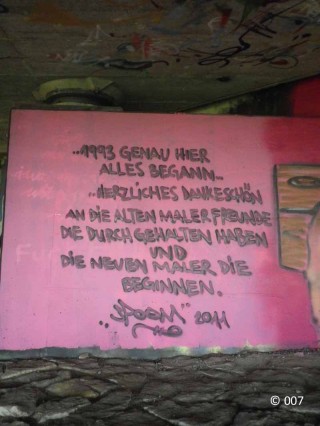 ..1993 GENAU HIER
ALLES BEGANN..
..HERZLICHES DANKESCHÖN
AN DIE ALTEN MALER FREUNDE
DIE DURCH GEHALTEN HABEN
UND
DIE NEUEN MALER DIE
BEGINNEN.
2011
© 007